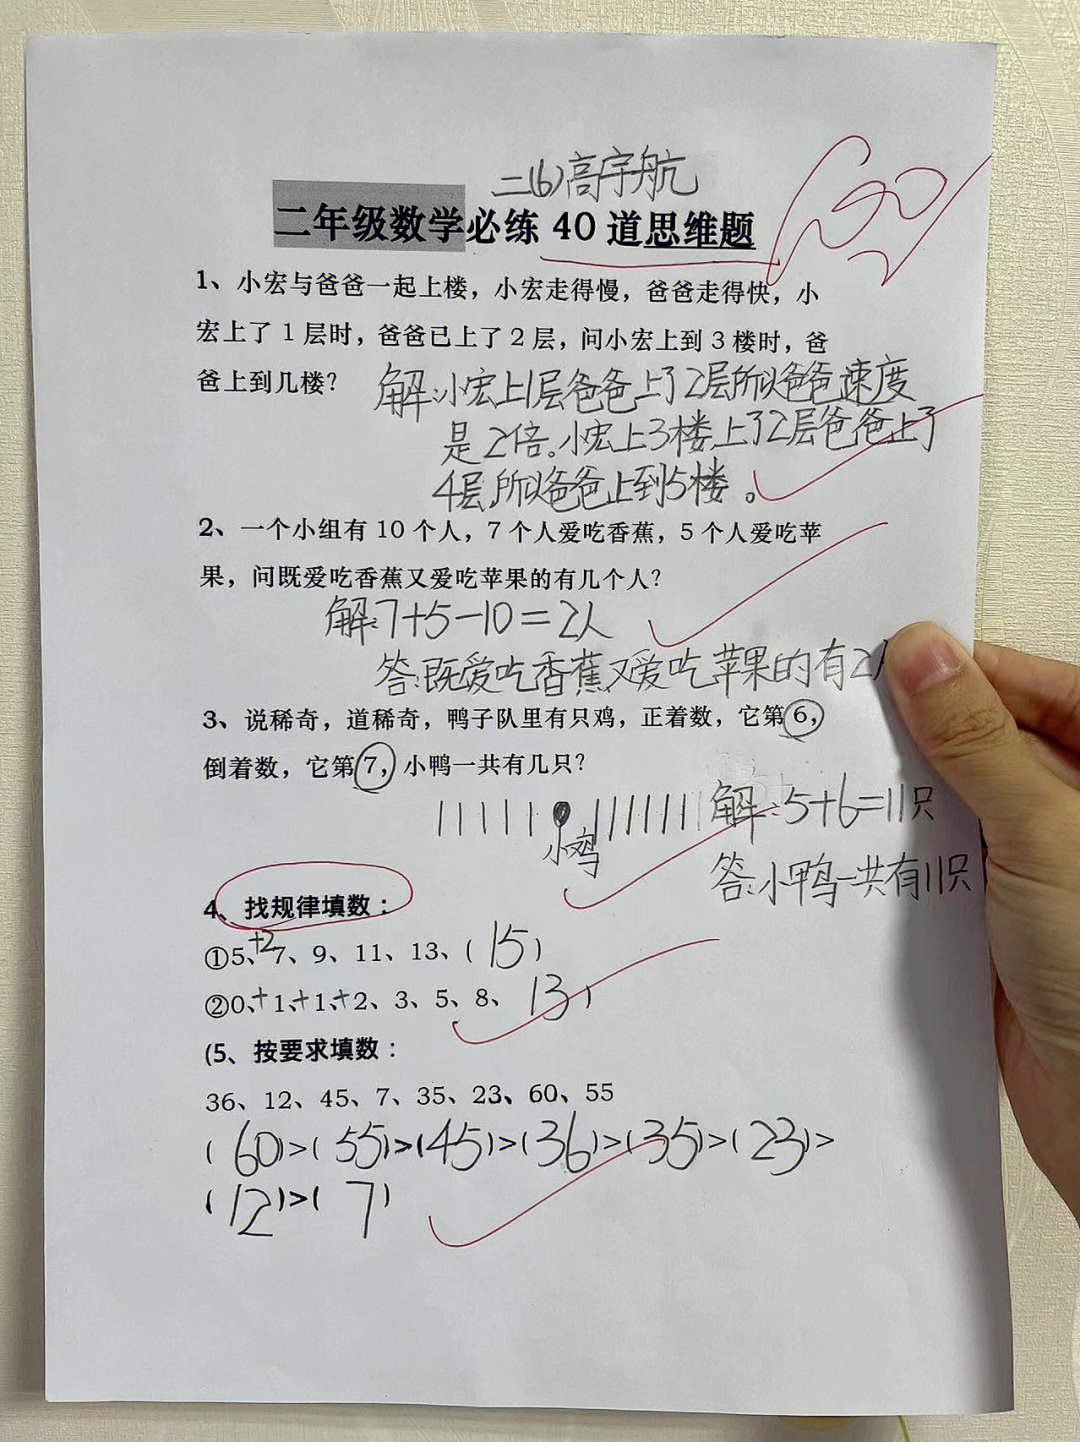 二(6)高宇航
二年级数学必练 40 道思维题
1、小宏与爸爸一起上楼，小宏走得慢，爸爸走得快，小
宏上了 1 层时，爸爸已上了 2 层，问小宏上到 3 楼时，爸
爸上到几楼？
解:小宏上1层爸爸上了2层所以爸爸速度
是2倍。小宏上3楼上了2层爸爸上了
4层,所以爸爸上到5楼。
2、一个小组有 10 个人，7 个人爱吃香蕉，5 个人爱吃苹
果，问既爱吃香蕉又爱吃苹果的有几个人？
解:7+5-10=2人
答:既爱吃香蕉又爱吃苹果的有2人
3、说稀奇，道稀奇，鸭子队里有只鸡，正着数，它第 6，
倒着数，它第 7，小鸭一共有几只？
小鸡
解:5+6=11只
答:小鸭一共有11只
4、找规律填数：
①5、+2 7、9、11、13、( 15 )
②0、+1、+1、+2、3、5、8、 13 )
(5、按要求填数：
36、12、45、7、35、23、60、55
( 60)>( 55)>(45)>(36)>(35)>( 23)>
(12)>( 7 )